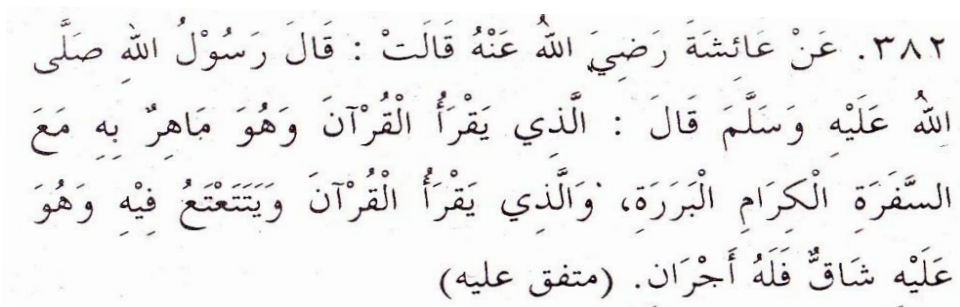 ٣٨٢. عَنْ عَائشَةَ رَضِيَ اللهُ عَنْهُ قَالَتْ : قَالَ رَسُوْلُ اللهِ صَلَّى
اللهُ عَلَيْهِ وَسَلَّمَ قَالَ : الَّذِي يَقْرَأُ الْقُرْآنَ وَهُوَ مَاهِرٌ بِهِ مَعَ
السَّفَرَةِ الْكِرَامِ الْبَرَرَةِ، وَالَّذِي يَقْرَأُ الْقُرْآنَ وَيَتَتَعْتَعُ فِيْهِ وَهُوَ
عَلَيْهِ شَاقٌّ فَلَهُ أَجْرَانِ. (متفق عليه)